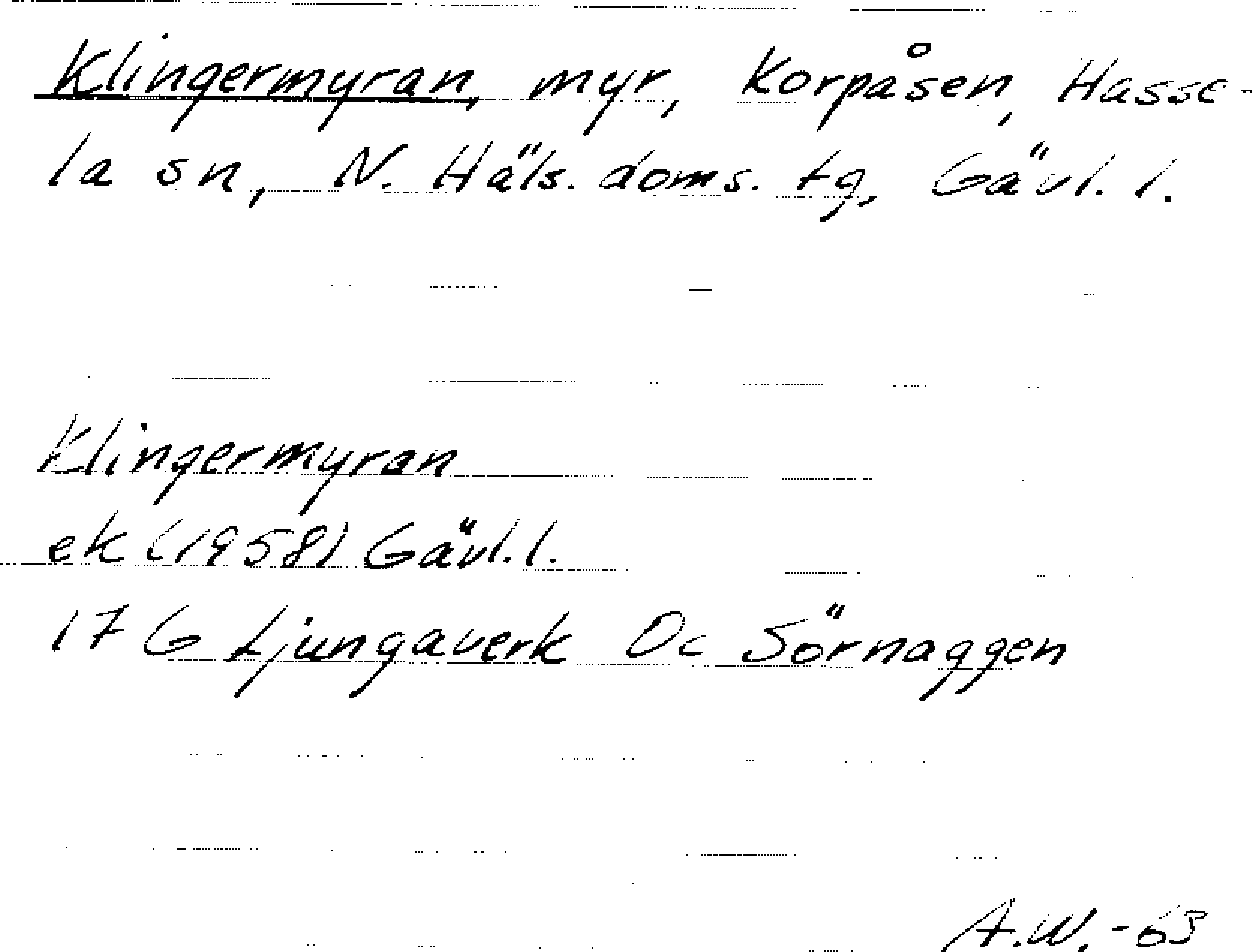 Klingermyran, myr, Korpåsen, Hasse-
la sn, N. Häls. doms. tg, Gävl. l.
Klingermyran
ek (1958) Gävl. l.
17 G Ljungaverk Oc Sörnaggen
A.W. -63